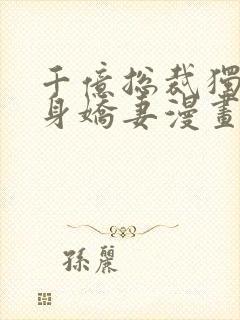 千億總裁獨
身嬌妻漫畫
孫麗